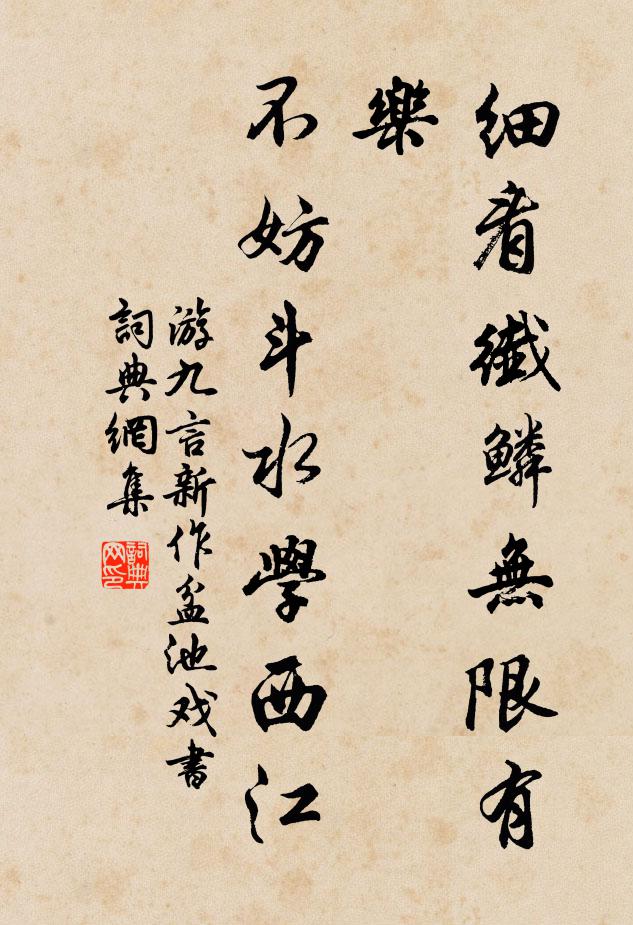 細看纖鱗無限有
樂
不妨斗水學西江
游九言新作盆池戏書
詞典網集
詞典網印